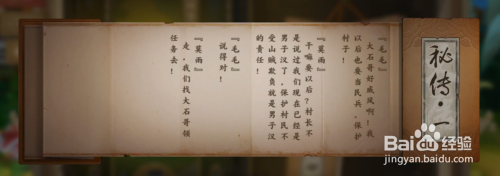 秘传·一
『毛毛』
大石哥好威风啊！我
以后也要当民兵，保护
村子！
『莫雨』
干嘛要以后？村长不
是说过我们现在已经是
男子汉了，保护村民不
受山贼欺负就是男子汉
的责任！
『毛毛』
说得对！
『莫雨』
走，我们找大石哥领
任务去！
Baidu 经验
jingyan.baidu.com